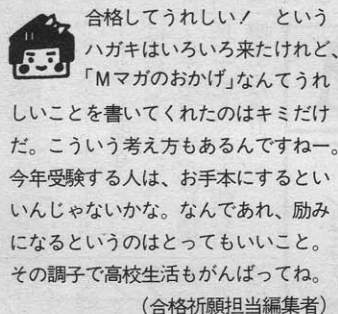 合格してうれしい！　という
ハガキはいろいろ来たけれど、
「Mマガのおかげ」なんてうれ
しいことを書いてくれたのはキミだけ
だ。こういう考え方もあるんですねー。
今年受験する人は、お手本にするとい
いんじゃないかな。なんであれ、励み
になるというのはとってもいいこと。
その調子で高校生活もがんばってね。
（合格祈願担当編集者）